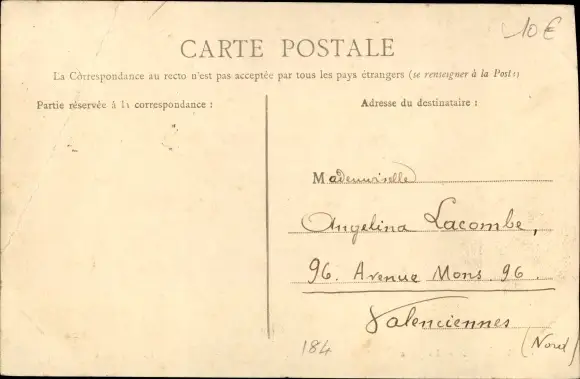 10€
CARTE POSTALE
La Còrrespondance au recto n'est pas acceptée par tous les pays étrangers (se renseigner à la Poste)
Partie réservée à la correspondance :
Adresse du destinataire :
Mademoiselle
Angelina Lacombe,
96. Avenue Mons. 96.
Valenciennes
(Nord)
184